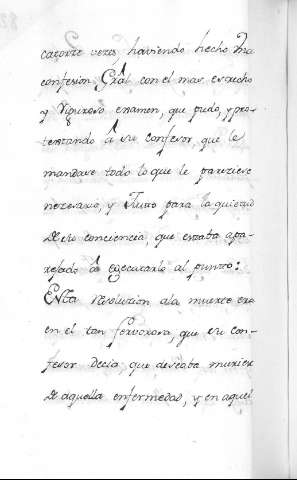 catorze veces haviendo hecho Vna
confesion Gral con el mas estrecho
y riguroso examen, que pudo, y pro-
testando â su confesor, que le
mandase todo lo que le pareziese
nezesario, y Justo para la quietud
de su conciencia, que estaba apa-
rejado â egecutarlo al punto:
Esta resolucion ala muerte era
en el tan fervorosa, que su con-
fesor decia, que deseaba muriese
de aquella enfermedad, y en aquel